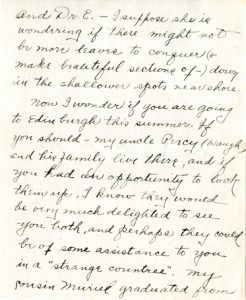 and Dr. E. – I suppose she is
wondering if there might not
be more leaves to conquer (&
make beautiful sections of –) down
in the shallower spots near shore.
Now I wonder if you are going
to Edinburgh this summer. If
you should – my uncle Percy (Waugh)
and his family live there, and if
you had an opportunity to look
them up, I know they would
be very much delighted to see
you both, and perhaps they could
be of some assistance to you
in a "strange countree". My
cousin Muriel graduated from